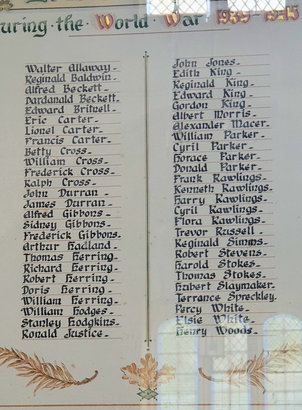 during · the · World · War 1939 - 1945
Walter Allaway -
Reginald Baldwin -
Alfred Beckett -
Dardanald Beckett -
Edward Britnell -
Eric Carter -
Lionel Carter -
Francis Carter -
Betty Cross -
William Cross -
Frederick Cross -
Ralph Cross -
John Durran -
James Durran -
Alfred Gibbons -
Sidney Gibbons -
Frederick Gibbons -
Arthur Hadland -
Thomas Herring -
Richard Herring -
Robert Herring -
Doris Herring -
William Herring -
William Hodges -
Stanley Hodgkins -
Ronald Justice -
John Jones -
Edith King -
Reginald King -
Edward King -
Gordon King -
Albert Morris -
Alexander Macer -
William Parker -
Cyril Parker -
Horace Parker -
Donald Parker -
Frank Rawlings -
Kenneth Rawlings -
Harry Rawlings -
Cyril Rawlings -
Flora Rawlings -
Trevor Russell -
Reginald Simms -
Robert Stevens -
Harold Stokes -
Thomas Stokes -
Hubert Slaymaker -
Terrance Spreckley -
Percy White -
Elsie White -
Henry Woods -